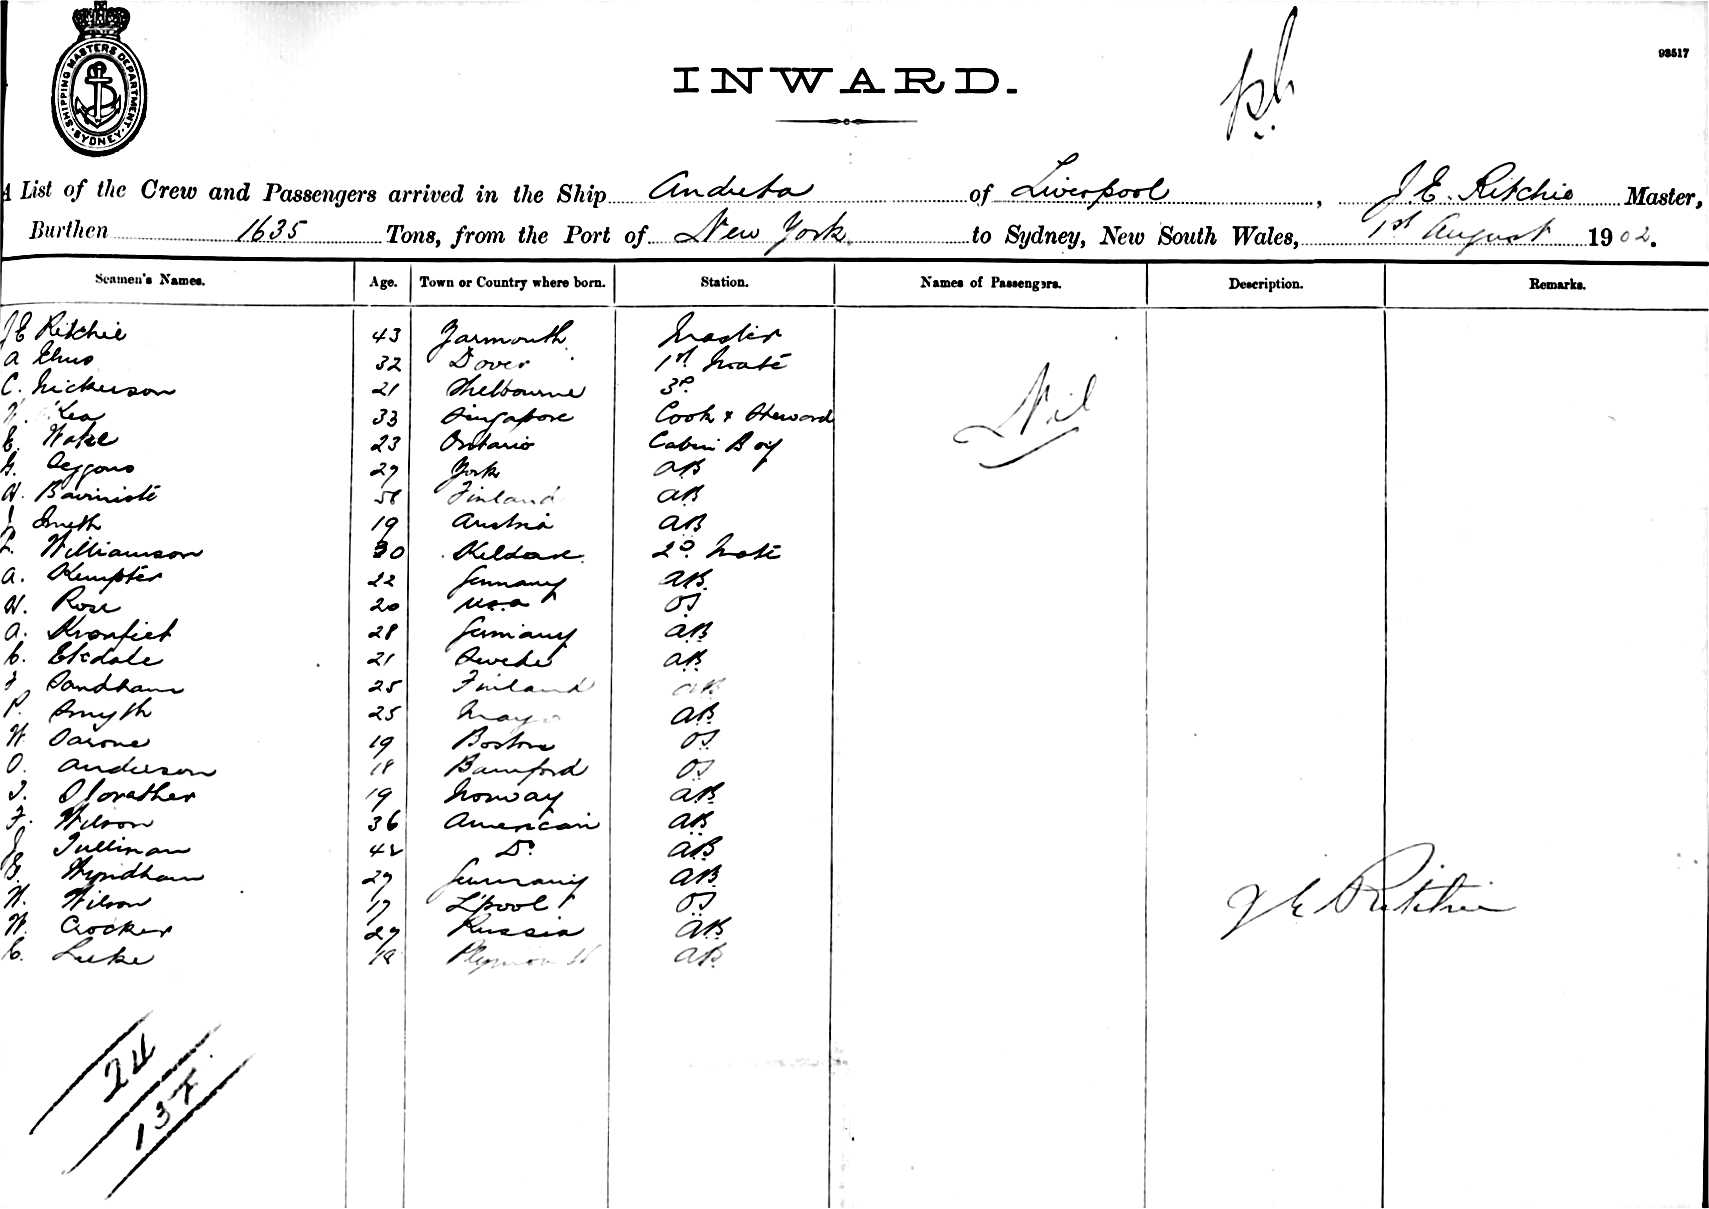 SHIPPING MASTERS DEPARTMENT SYDNEY
INWARD.
93517
A List of the Crew and Passengers arrived in the Ship Andreta of Liverpool, J. E. Ritchie Master,
Burthen 1635 Tons, from the Port of New York to Sydney, New South Wales, 1st August 1902.
Seamen's Names. Age. Town or Country where born. Station. Names of Passengers. Description. Remarks.
J E Ritchie 43 Yarmouth Master
A 32 Dover 1st Mate
C. Nickerson 21 Shelbourne 3d
W. 33 Singapore Cook & Steward
Nil
E. Wake 23 Ontario Cabin Boy
G. 29 York AB
H. 58 Finland AB
J Smith 19 Austria AB
Williamson 30 Kildare 2d Mate
A. Kempter 22 Germany AB
H. Rose 20 USA OS
A. 28 Germany AB
C. Ekdale 21 Swede AB
Sandham 25 Finland AB
P. Smyth 25 Mayo AB
W 19 Boston OS
O. Anderson 18 Bamford OS
19 Norway AB
F. Wilson 36 American AB
J 42 Do AB
G. Wyndham 29 Germany AB
W. Wilson 17 L'pool OS
J E Ritchie
W. Crocker 29 Russia AB
C. Luke 18 Plymouth AB
24
137